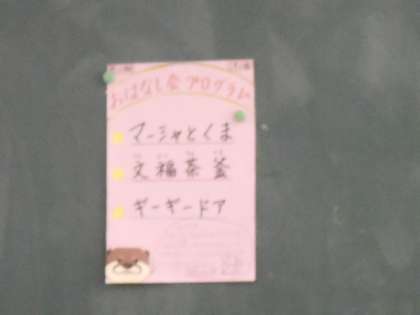 おはなし会プログラム
マーシャとくま
文福茶釜
ギーギードア